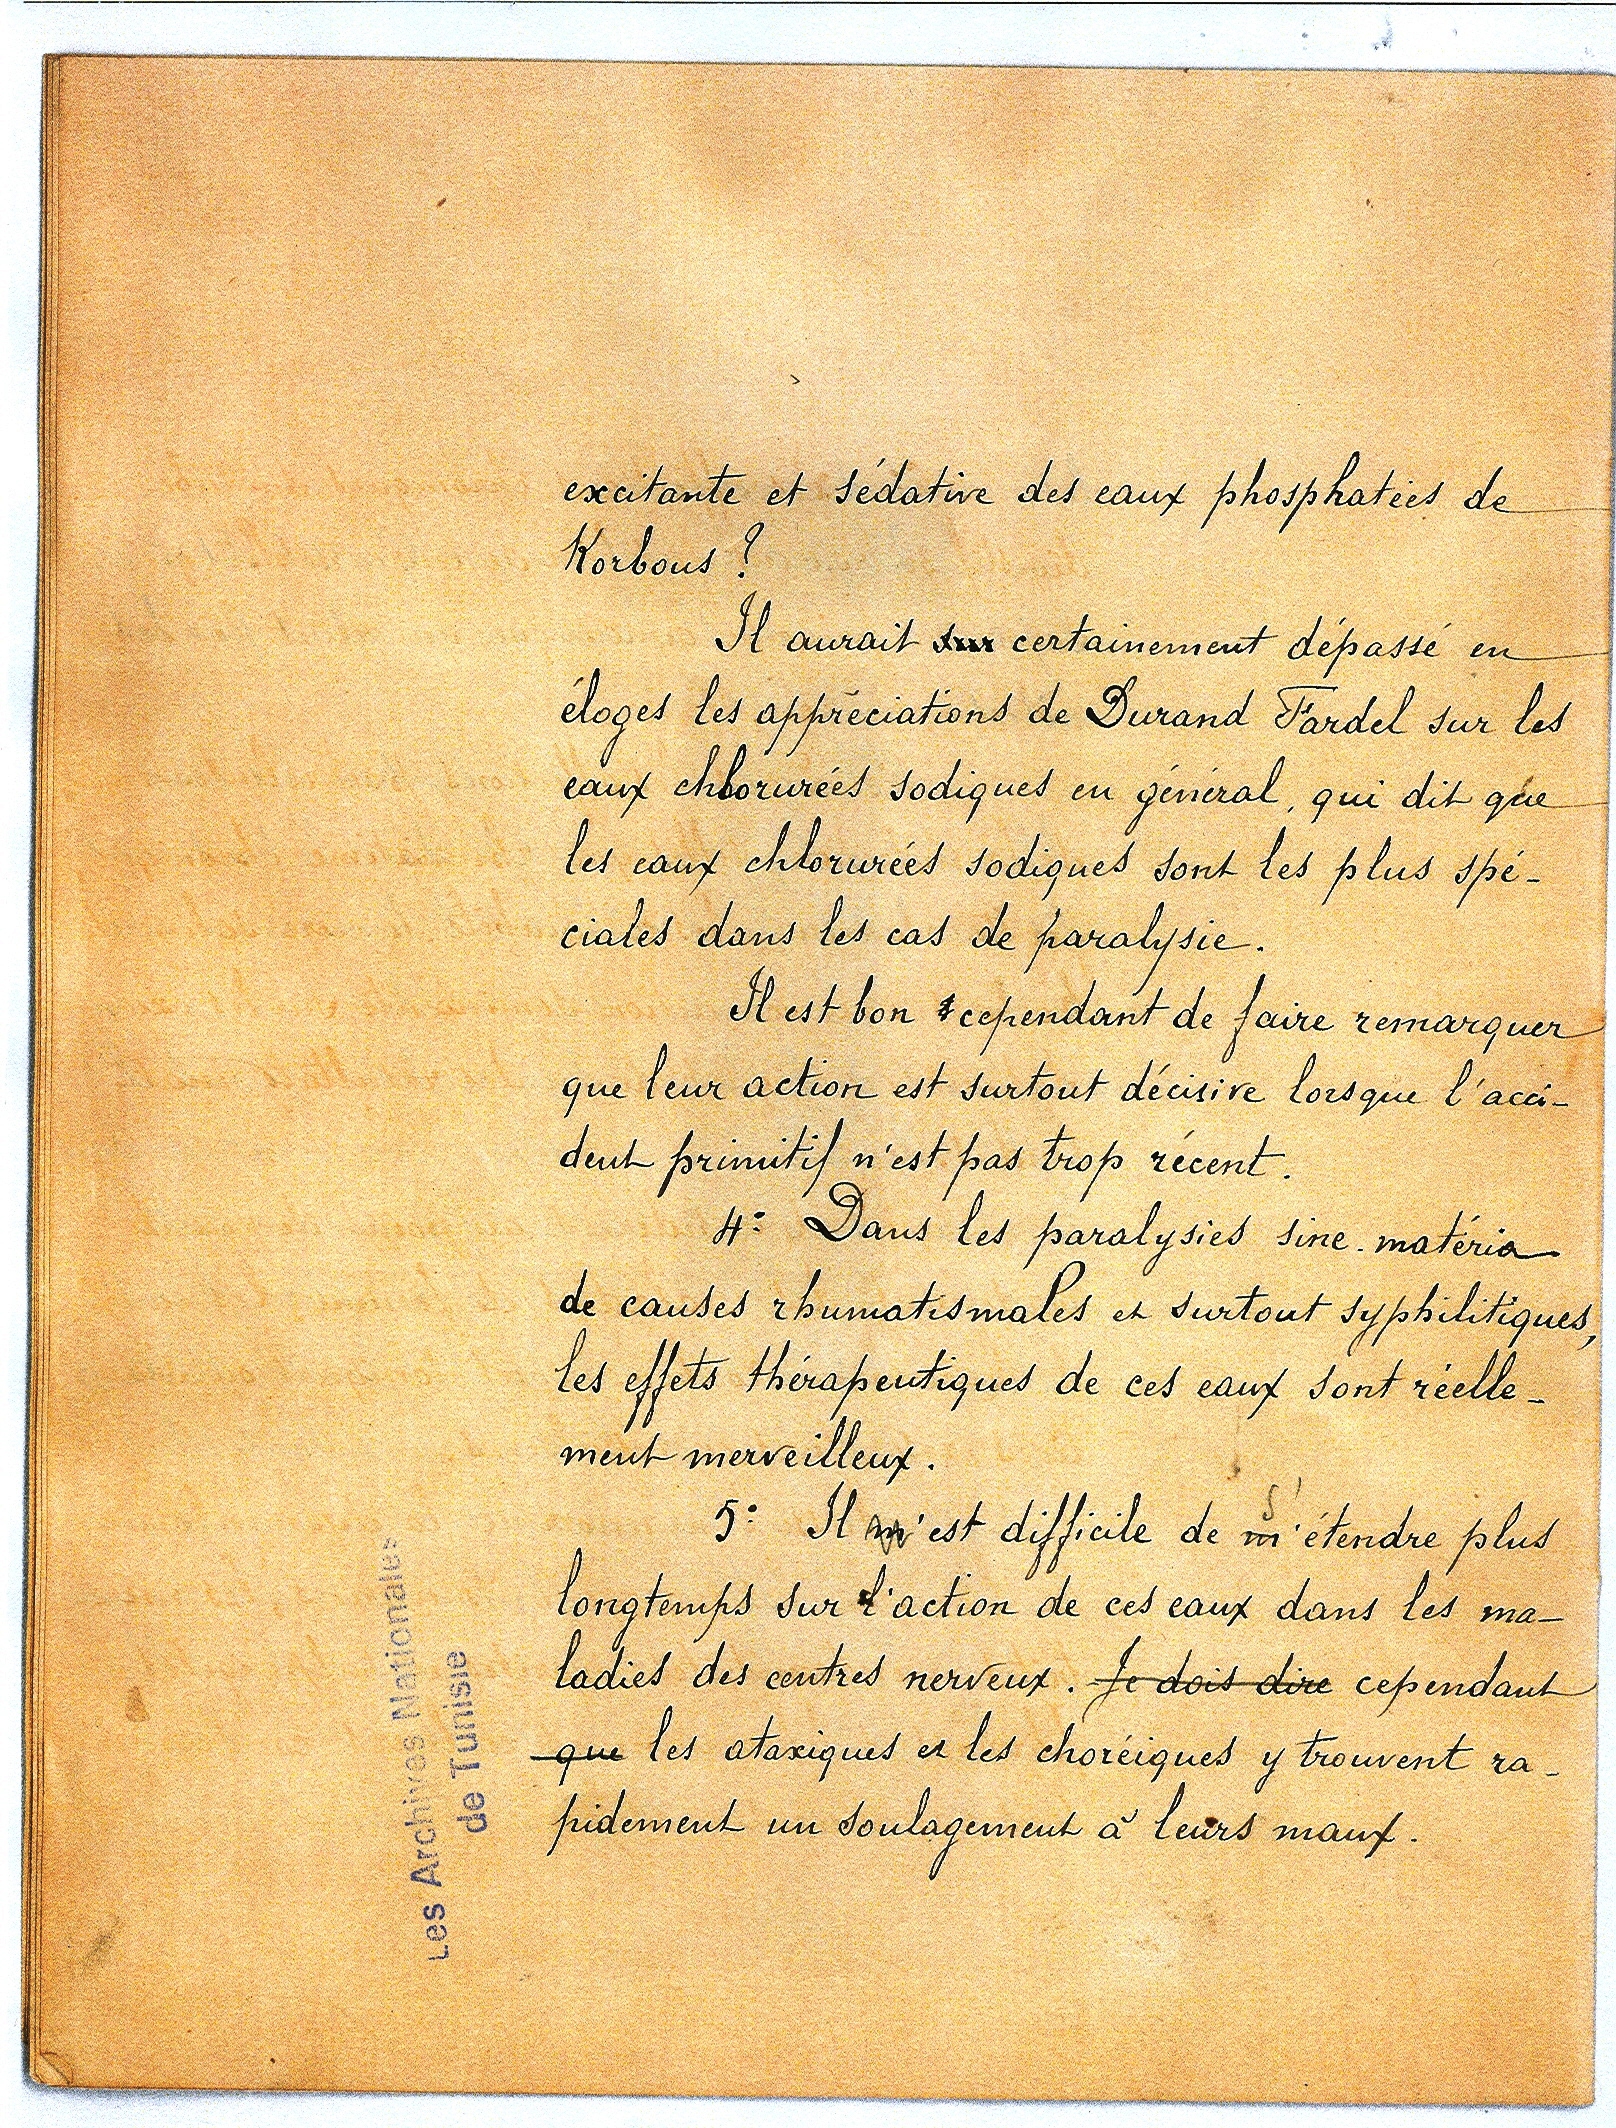 excitante et sédative des eaux phosphatées de
Korbous ?
Il aurait sur certainement dépassé en
éloges les appréciations de Durand Fardel sur les
eaux chlorurées sodiques en général, qui dit que
les eaux chlorurées sodiques sont les plus spé-
ciales dans les cas de paralysie.
Il est bon cependant de faire remarquer
que leur action est surtout décisive lorsque l'acci-
dent primitif n'est pas trop récent.
4° Dans les paralysies sine-matéria
de causes rhumatismales et surtout syphilitiques,
les effets thérapeutiques de ces eaux sont réelle-
ment merveilleux.
5° Il m'est difficile de m's'étendre plus
longtemps sur l'action de ces eaux dans les ma-
ladies des centres nerveux. Je dois dire cependant
que les ataxiques et les choréiques y trouvent ra-
pidement un soulagement à leurs maux.
Les Archives Nationales
de Tunisie